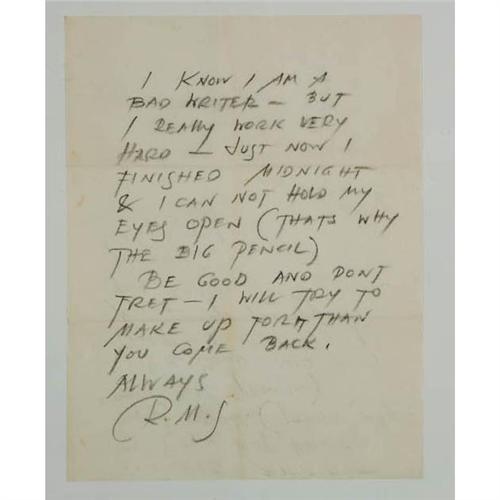 I KNOW I AM A
BAD WRITER – BUT
I REALLY WORK VERY
HARD – JUST NOW I
FINISHED MIDNIGHT
& I CAN NOT HOLD MY
EYES OPEN (THATS WHY
THE BIG PENCIL)
BE GOOD AND DONT
FRET – I WILL TRY TO
MAKE UP FOR THAN
YOU COME BACK.
ALWAYS
R.M.S